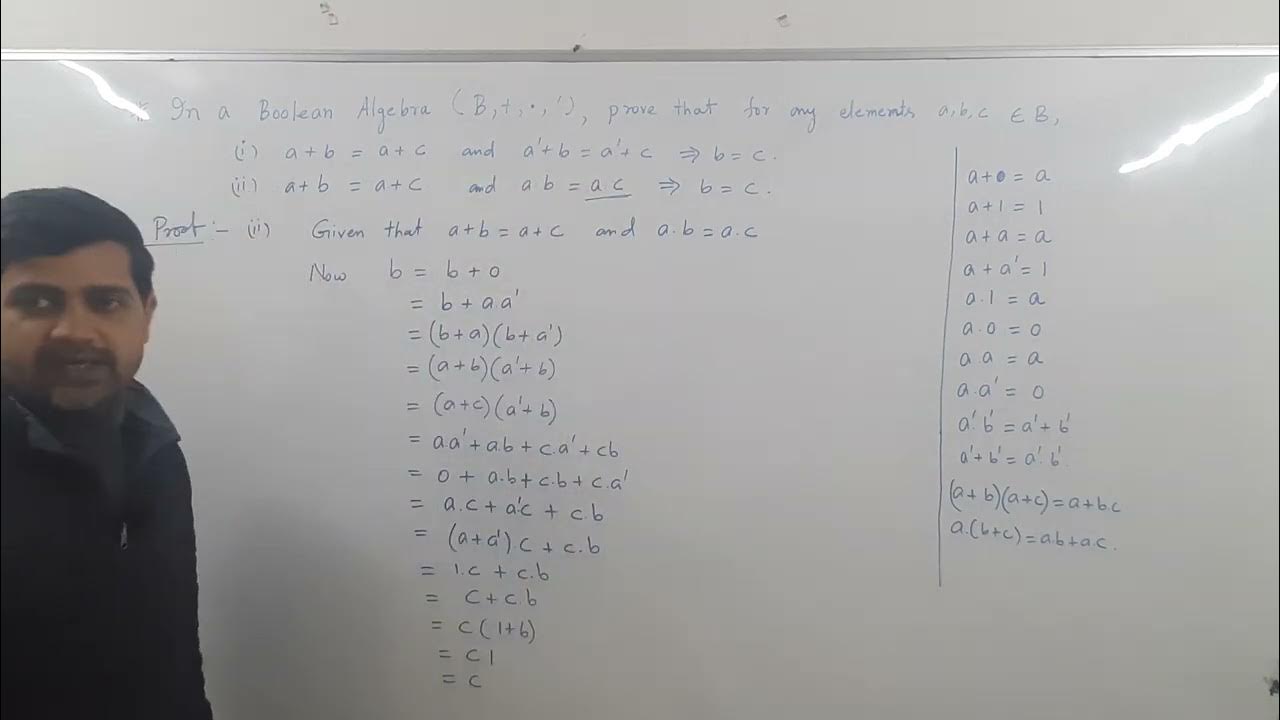 * In a Boolean Algebra (B, +, ·, '), prove that for any elements a, b, c ∈ B,
(i) a + b = a + c and a' + b = a' + c ⇒ b = c.
(ii) a + b = a + c and a b = a.c ⇒ b = c.
Proof :- (ii) Given that a + b = a + c and a.b = a.c
Now b = b + 0
= b + a.a'
= (b + a) (b + a')
= (a + b) (a' + b)
= (a + c) (a' + b)
= a.a' + a.b + c.a' + cb
= 0 + a.b + c.b + c.a'
= a.c + a'c + c.b
= (a + a') c + c.b
= 1.c + c.b
= c + c.b
= c (1 + b)
= c 1
= c
a + 0 = a
a + 1 = 1
a + a = a
a + a' = 1
a.1 = a
a.0 = 0
a.a = a
a.a' = 0
a'. b' = a' + b'
a' + b' = a'. b'
(a + b) (a + c) = a + b.c
a.(b + c) = a.b + a.c.